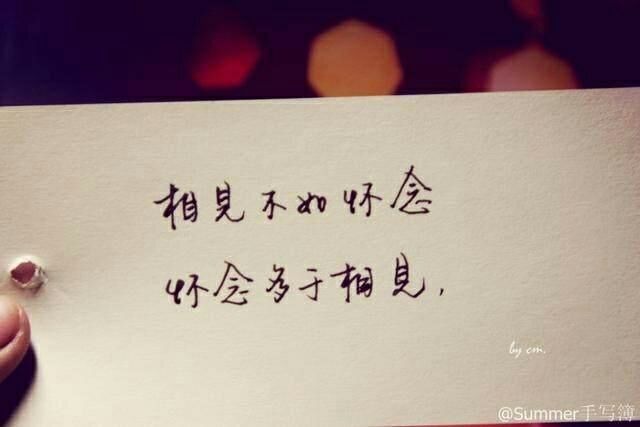 相見不如怀念
怀念多于相見，
by cm.
@Summer手写簿